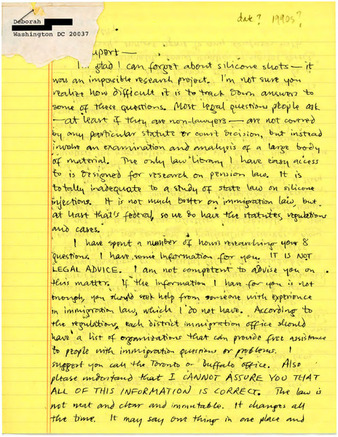 date? 1990s?
Deborah
Washington DC 20037
Rupert —
I'm glad I can forget about silicone shots — it
was an impossible research project. I'm not sure you
realize how difficult it is to track down answers to
some of these questions. Most legal question people ask
— at least if they are non-lawyers — are not covered
by any particular statute or court decision, but instead
involve an examination and analysis of a large body
of material. The only law library I have easy access
to is designed for research on pension law. It is
totally inadequate to a study of state law on silicone
injections. It is not much better on immigration law, but
at least that's federal, so we do have the statutes, regulations
and cases.
I have spent a number of hours researching your 8
questions. I have some information for you. IT IS NOT
LEGAL ADVICE. I am not competent to advise you on
this matter. If the information I have for you is not
enough, you should seek help from someone with experience
in immigration law, which I do not have. According to
the regulations, each district immigration office should
have a list of organizations that can provide free assistance
to people with immigration questions or problems. I
suggest you call the Toronto or Buffalo office. Also
please understand that I CANNOT ASSURE YOU THAT
ALL OF THIS INFORMATION IS CORRECT. The law is
not neat and clear and immutable. It changes all
the time. It may say one thing in one place and